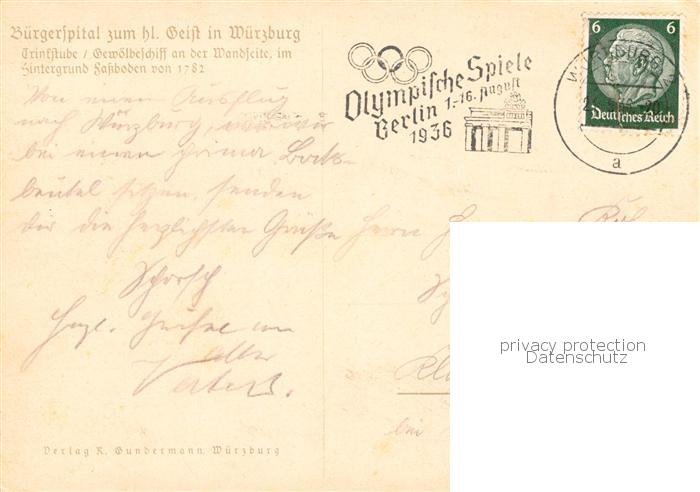 Bürgerspital zum hl. Geist in Würzburg
Trinkstube / Gewölbeschiff an der Wandseite, im
Hintergrund Faßboden von 1782
Von einem Ausflug
nach Würzburg, wo wir
bei einem prima Bocks-
beutel sitzen, senden
dir die herzlichsten Grüße
Schorsch
Herzl. Grüße
Olympische Spiele
Berlin 1.-16. August
1936
6 6
Deutsches Reich
WÜRZBURG
a
Herrn
bei
privacy protection
Datenschutz
Verlag K. Gundermann, Würzburg